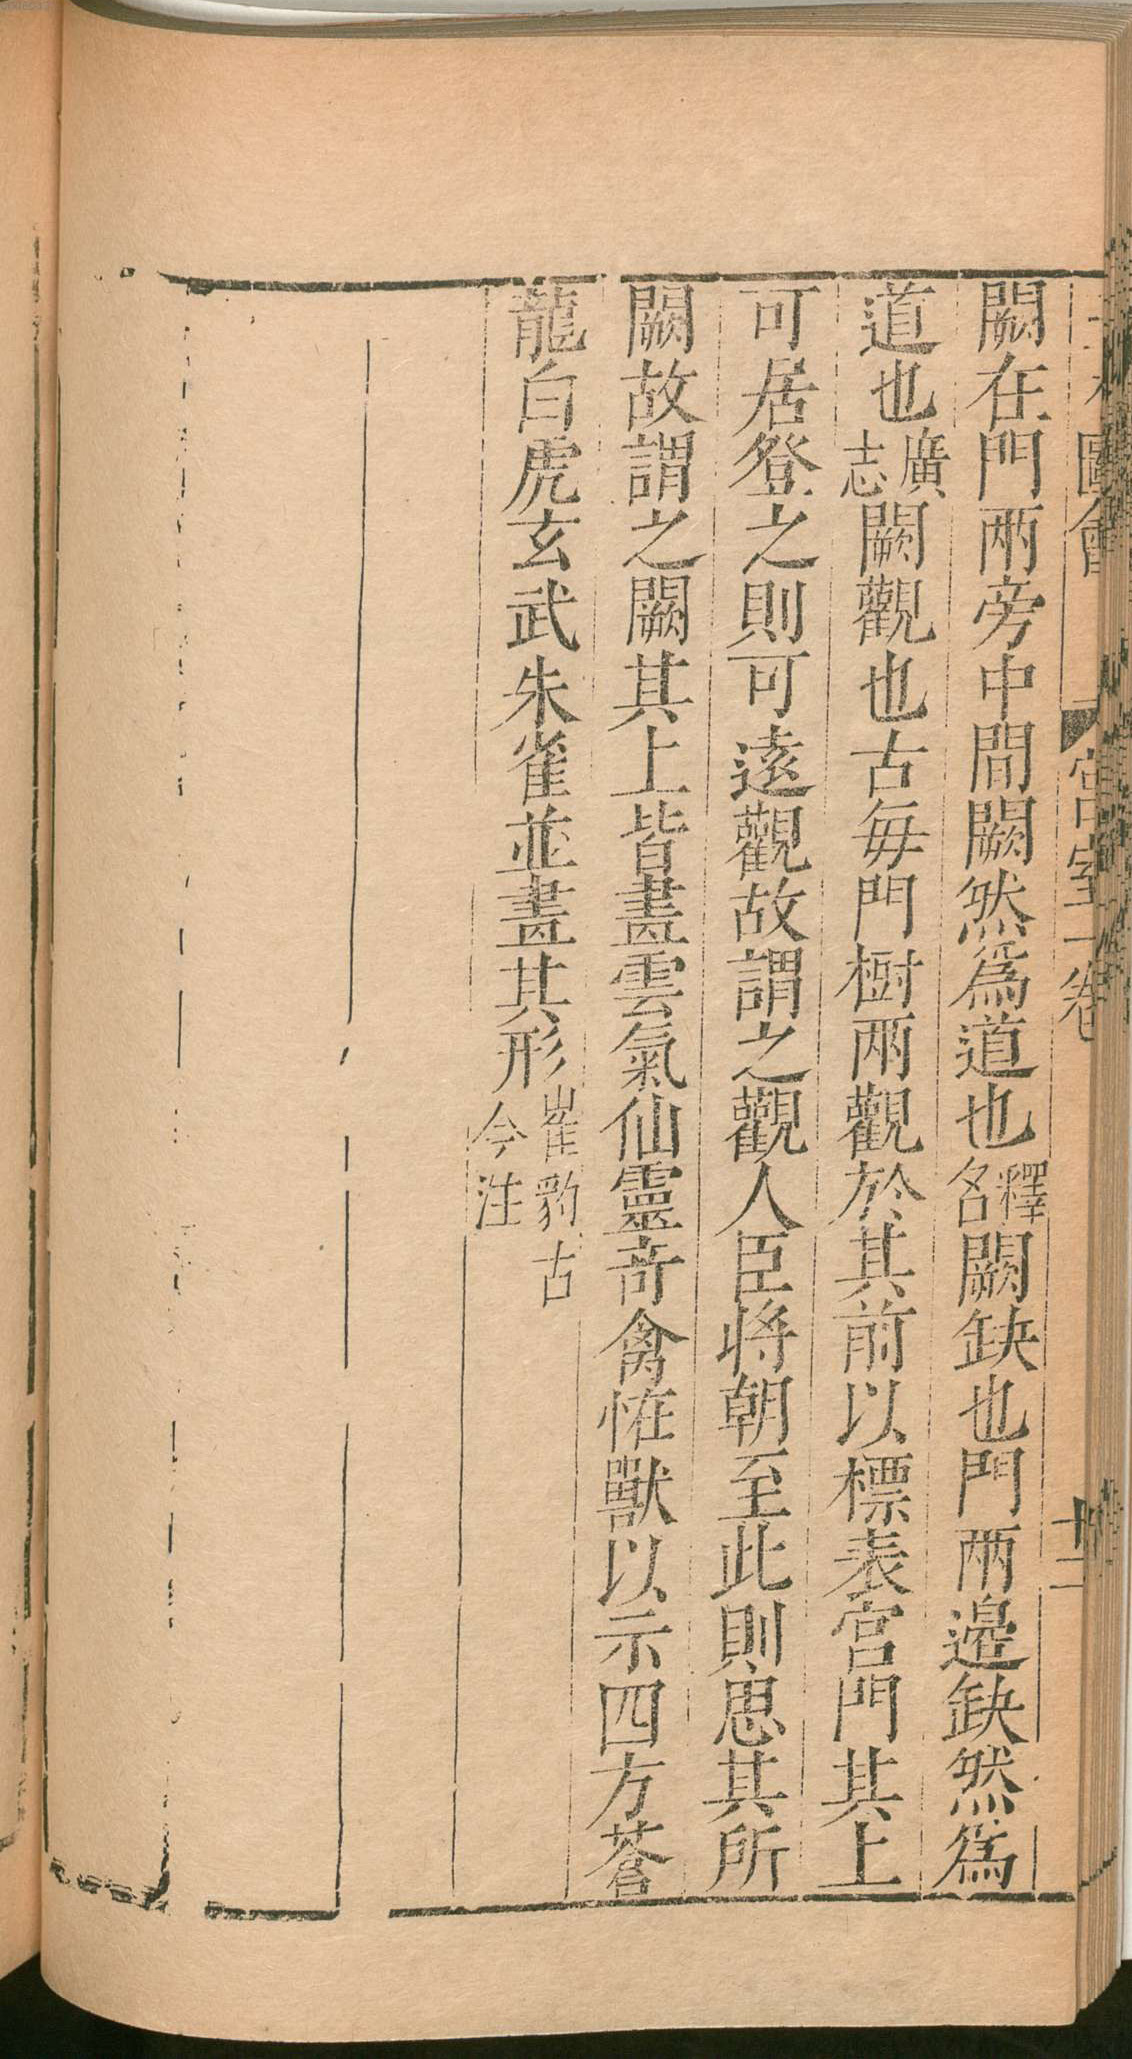 圖會 宮室一卷 十二
闕在門兩旁中間闕然爲道也釋名闕缺也門兩邊缺然爲
道也廣志闕觀也古每門樹兩觀於其前以標表宮門其上
可居登之則可遠觀故謂之觀人臣將朝至此則思其所
闕故謂之闕其上皆畫雲氣仙靈奇禽恠獸以示四方蒼
龍白虎玄武朱雀並畫其形崔豹古今注